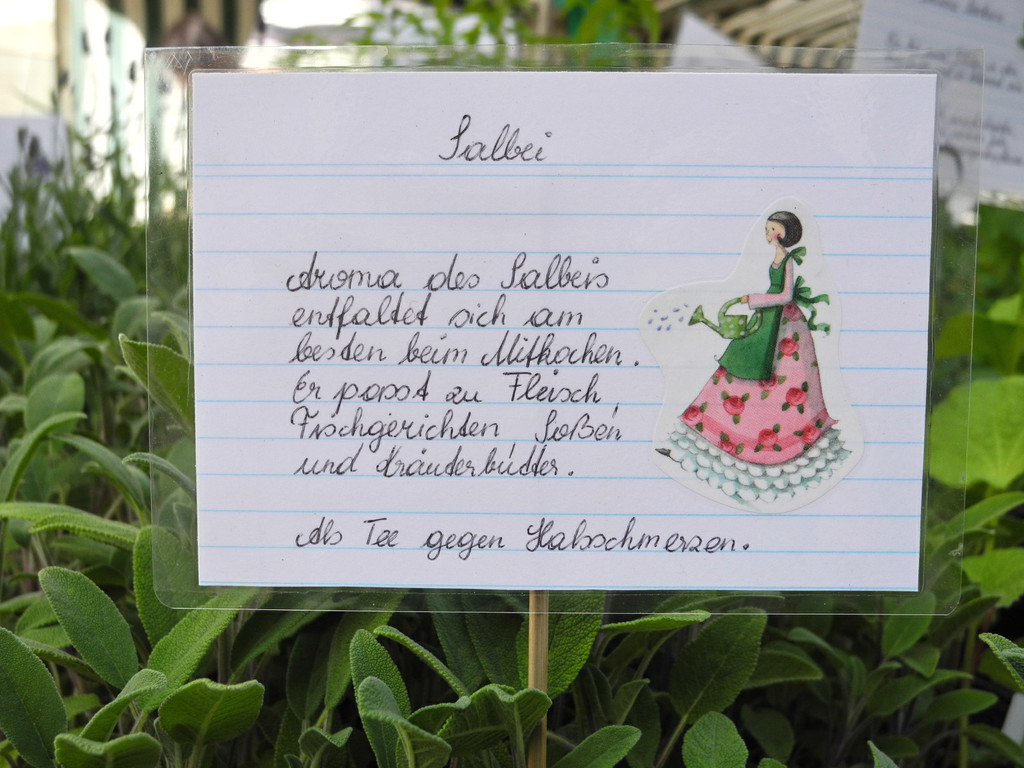 Salbei
Aroma des Salbeis
entfaltet sich am
besten beim Mitkochen.
Er passt zu Fleisch,
Fischgerichten, Soßen
und Kräuterbutter.
Als Tee gegen Halsschmerzen.